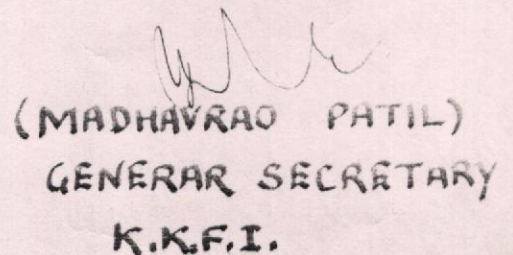 (MADHAVRAO PATIL)
GENERAR SECRETARY
K.K.F.I.